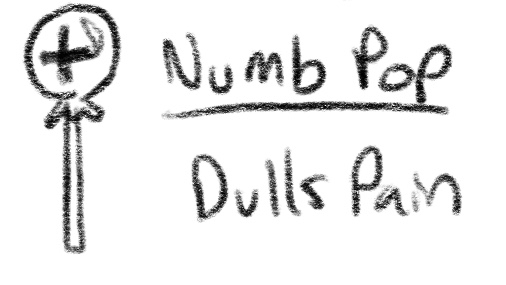 Numb Pop
Dulls Pain